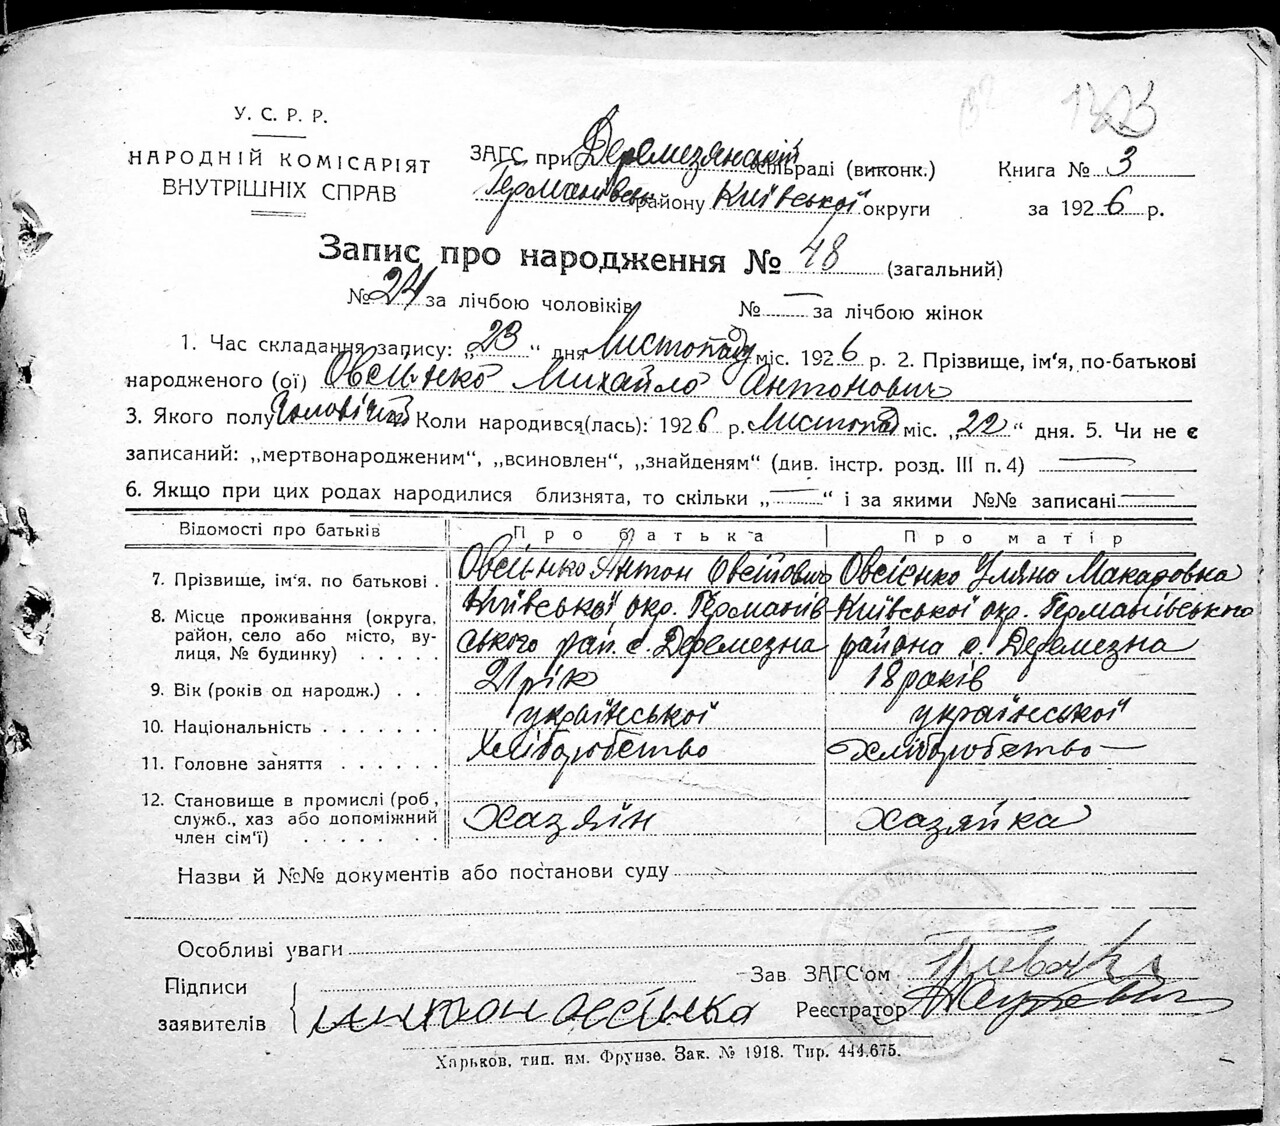 У. С. Р. Р.
НАРОДНІЙ КОМІСАРІЯТ
ВНУТРІШНІХ СПРАВ
ЗАГС при Деремезянській сільраді (виконк.)
Германівськ району Київської округи
Книга № 3
за 1926 р.
Запис про народження № 48 (загальний)
№ 24 за лічбою чоловіків № — за лічбою жінок
1. Час складання запису: „23“ дня Листопаду міс. 1926 р. 2. Прізвище, ім'я, по-батькові
народженого (ої) Овсієнко Михайло Антонович
3. Якого полу Чоловічої Коли народився(лась): 1926 р. Листопад міс. „22“ дня. 5. Чи не є
записаний: „мертвонародженим“, „всиновлен“, „знайденям“ (див. інстр. розд. III п. 4) —
6. Якщо при цих родах народилися близнята, то скільки „—“ і за якими №№ записані —
Відомості про батьків Про батька Про матір
7. Прізвище, ім'я, по батькові . Овсієнко Антон Овсійович Овсієнко Уляна Макаровна
8. Місце проживання (округа, район, село або місто, вулиця, № будинку) . . . . Київської окр. Германівського рай. с. Деремезна Київської окр. Германівського района с. Деремезна
9. Вік (років од народж.) . . 21 рік 18 років
10. Національність . . . . . . . української української
11. Головне заняття . . . . . . Хліборобство хліборобство —
12. Становище в промислі (роб., служб., хаз або допоміжний член сім'ї) . . . . . . . Хазяїн хазяйка
Назви й №№ документів або постанови суду
Особливі уваги
Підписи
заявителів
Зав ЗАГС'ом
Реєстратор
Харьков, тип. им. Фрунзе. Зак. № 1918. Тир. 444.675.